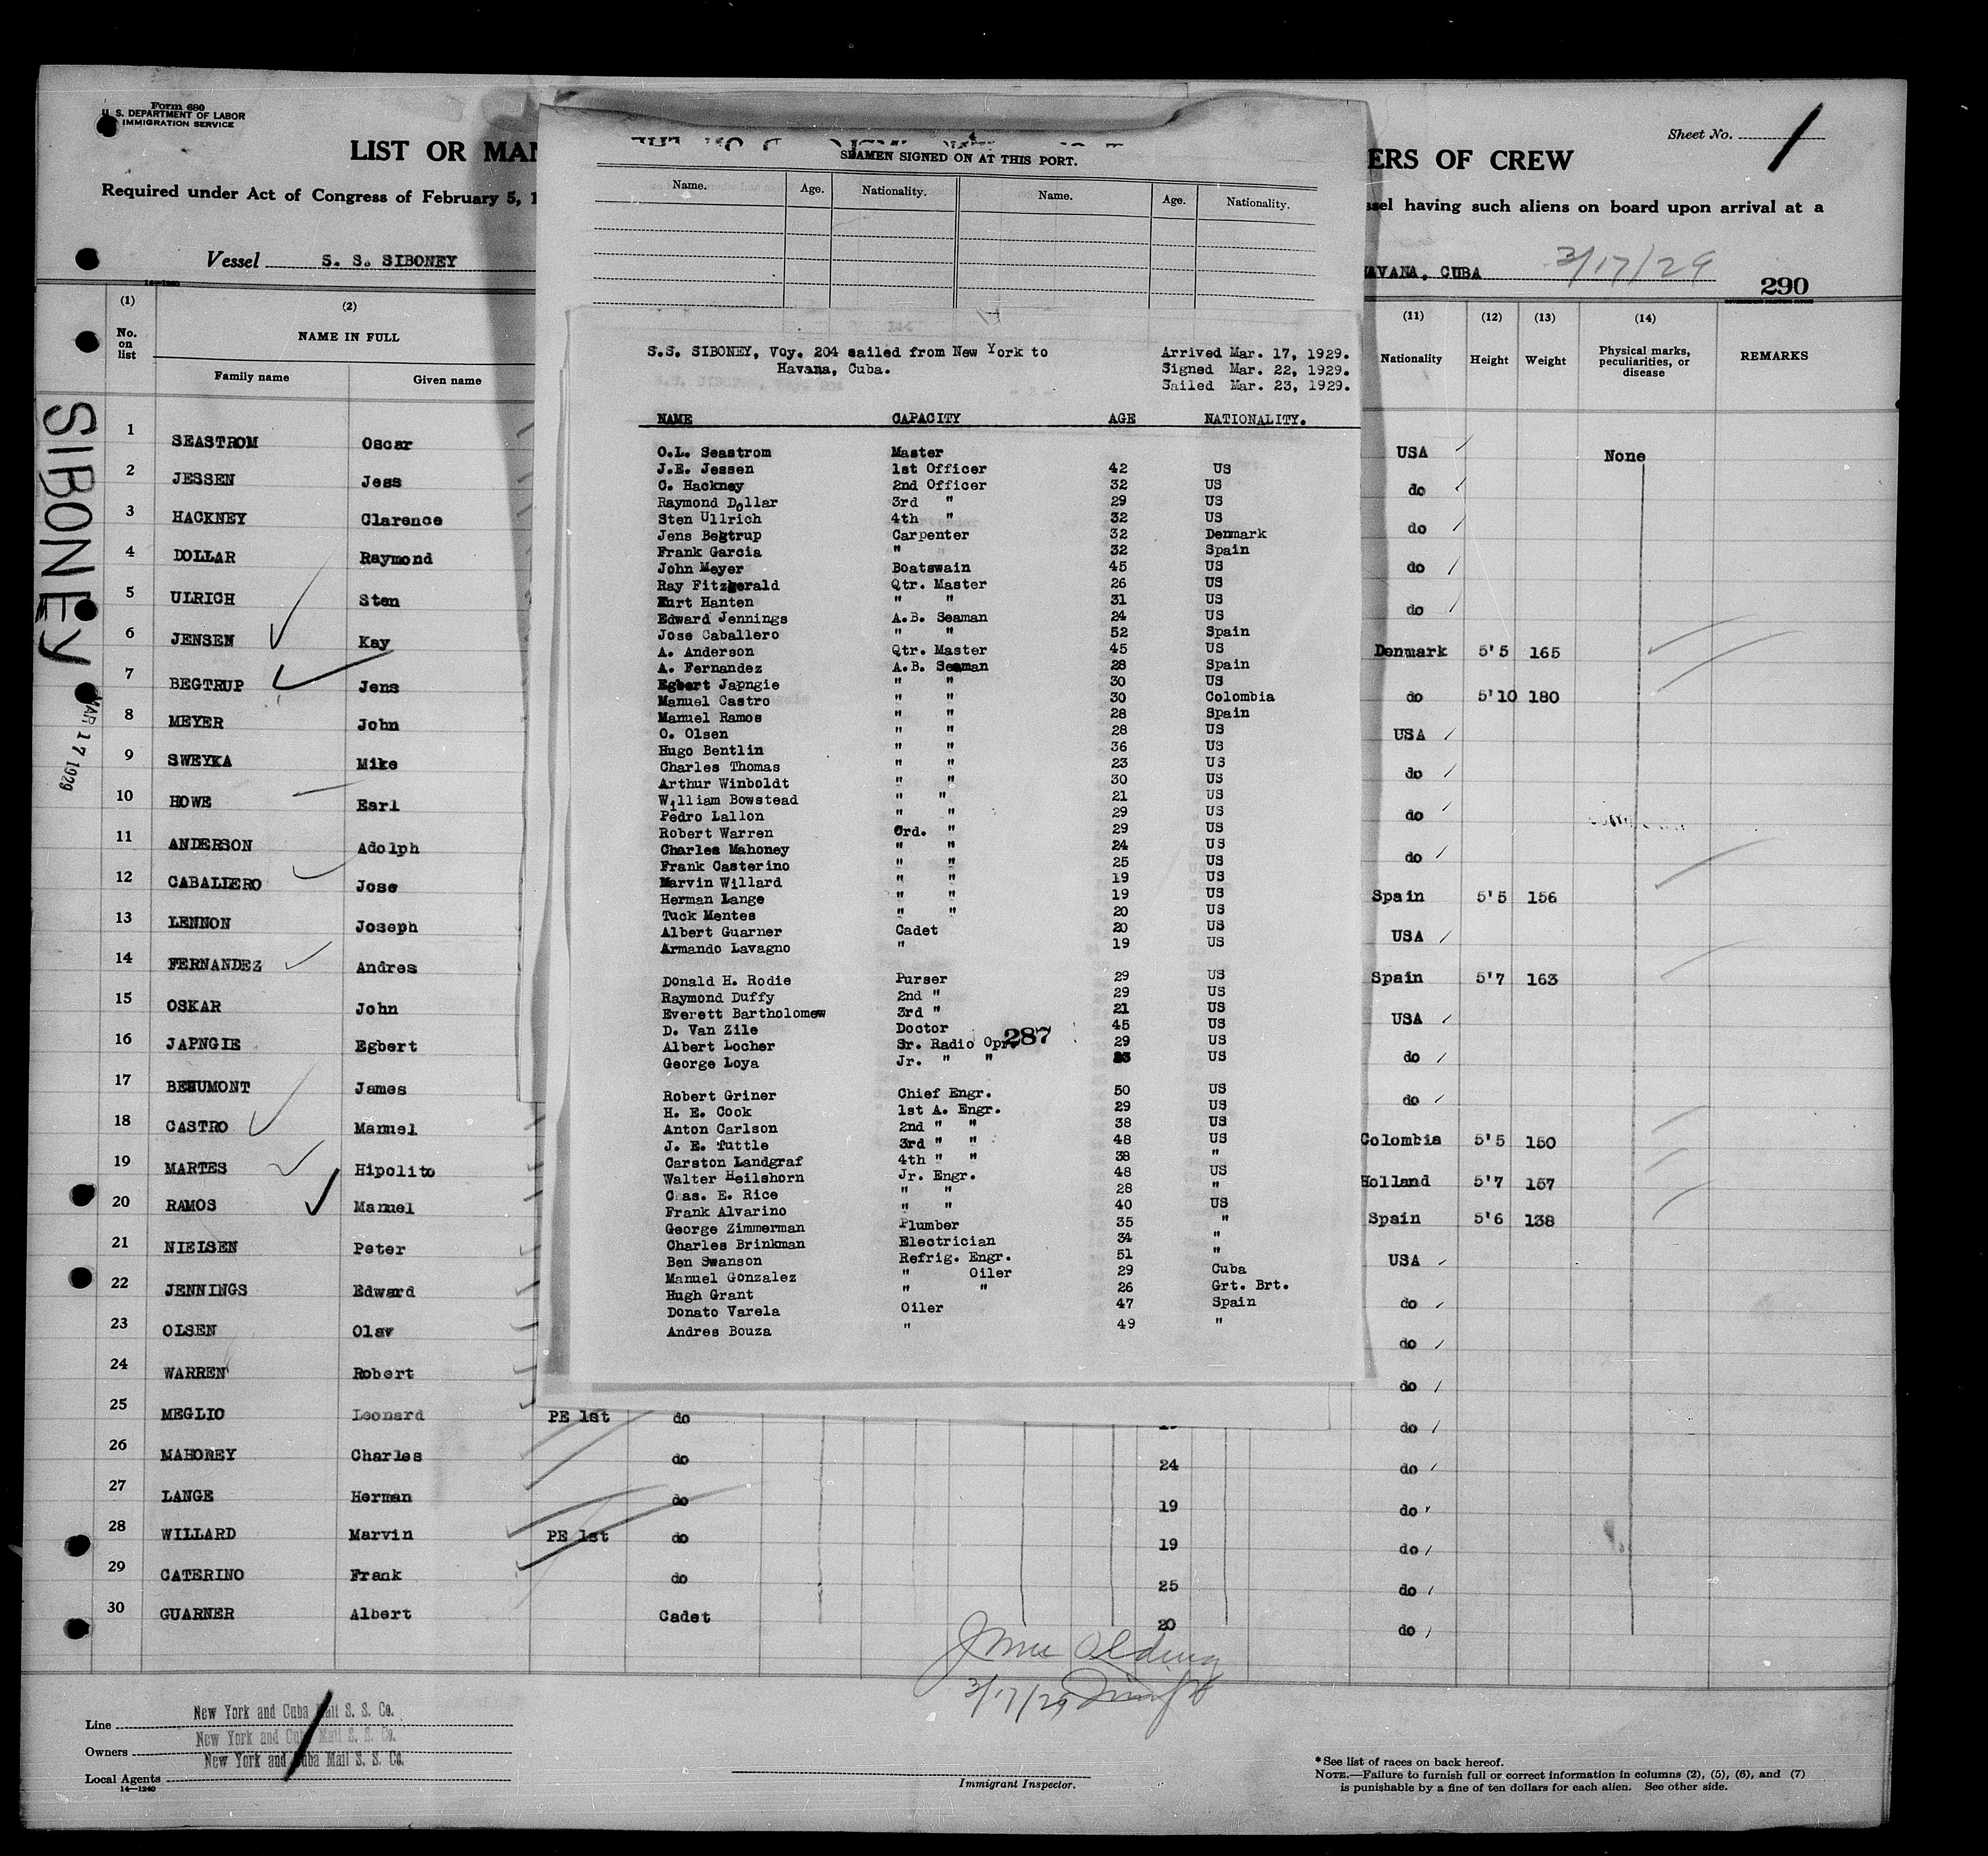 Form 680
U. S. DEPARTMENT OF LABOR
IMMIGRATION SERVICE
LIST OR MAN
ERS OF CREW
Sheet No. 1
Required under Act of Congress of February 5, 1
ssel having such aliens on board upon arrival at a
Vessel S. S. SIBONEY
HAVANA, CUBA 3/17/29
290
SEAMEN SIGNED ON AT THIS PORT.
Name. Age. Nationality. Name. Age. Nationality.
(1) (2) (11) (12) (13) (14)
No. on list NAME IN FULL Nationality Height Weight Physical marks, peculiarities, or disease REMARKS
Family name Given name
SIBONEY
MAR 17 1929
1 SEASTROM Oscar USA None
2 JESSEN Jess do
3 HACKNEY Clarence do
4 DOLLAR Raymond do
5 ULRICH Sten do
6 JENSEN Kay Denmark 5'5 165
7 BEGTRUP Jens do 5'10 180
8 MEYER John USA
9 SWEYKA Mike do
10 HOWE Earl do
11 ANDERSON Adolph do
12 CABALLERO Jose Spain 5'5 156
13 LENNON Joseph USA
14 FERNANDEZ Andres Spain 5'7 163
15 OSKAR John USA
16 JAPNGIE Egbert do
17 BEAUMONT James do
18 CASTRO Manuel Colombia 5'5 150
19 MARTES Hipolito Holland 5'7 157
20 RAMOS Manuel Spain 5'6 138
21 NIELSEN Peter USA
22 JENNINGS Edward do
23 OLSEN Olav do
24 WARREN Robert do
25 MEGLIO Leonard PE 1st do do
26 MAHONEY Charles do 24 do
27 LANGE Herman do 19 do
28 WILLARD Marvin PE 1st do 19 do
29 CATERINO Frank do 25 do
30 GUARNER Albert Cadet 20 do
S.S. SIBONEY, Voy. 204 sailed from New York to Arrived Mar. 17, 1929.
Havana, Cuba. Signed Mar. 22, 1929.
Sailed Mar. 23, 1929.
NAME CAPACITY AGE NATIONALITY.
O.L. Seastrom Master
J.E. Jessen 1st Officer 42 US
C. Hackney 2nd Officer 32 US
Raymond Dollar 3rd " 29 US
Sten Ullrich 4th " 32 US
Jens Begtrup Carpenter 32 Denmark
Frank Garcia " 32 Spain
John Meyer Boatswain 45 US
Ray Fitzgerald Qtr. Master 26 US
Kurt Hanten " " 31 US
Edward Jennings A.B. Seaman 24 US
Jose Caballero " " 52 Spain
A. Anderson Qtr. Master 45 US
A. Fernandez A.B. Seaman 28 Spain
Egbert Japngie " " 30 US
Manuel Castro " " 30 Colombia
Manuel Ramos " " 28 Spain
O. Olsen " " 28 US
Hugo Bentlin " " 36 US
Charles Thomas " " 23 US
Arthur Winboldt " " 30 US
William Bowstead " " 21 US
Pedro Lallon " " 29 US
Robert Warren Ord. " 29 US
Charles Mahoney " " 24 US
Frank Casterino " " 25 US
Marvin Willard " " 19 US
Herman Lange " " 19 US
Tuck Mentes " " 20 US
Albert Guarner Cadet 20 US
Armando Lavagno " 19 US
Donald H. Rodie Purser 29 US
Raymond Duffy 2nd " 29 US
Everett Bartholomew 3rd " 21 US
D. Van Zile Doctor 45 US
Albert Locher Sr. Radio Opr. 29 US
287
George Loya Jr. " " 23 US
Robert Griner Chief Engr. 50 US
H. E. Cook 1st A. Engr. 29 US
Anton Carlson 2nd " " 38 US
J. E. Tuttle 3rd " " 48 US
Carston Landgraf 4th " " 38 "
Walter Heilshorn Jr. Engr. 48 US
Chas. E. Rice " " 28 "
Frank Alvarino " " 40 US
George Zimmerman Plumber 35 "
Charles Brinkman Electrician 34 "
Ben Swanson Refrig. Engr. 51 "
Manuel Gonzalez " Oiler 29 Cuba
Hugh Grant " " 26 Grt. Brt.
Donato Varela Oiler 47 Spain
Andres Bouza " 49 "
3/17/29
Line New York and Cuba Mail S. S. Co.
Owners New York and Cuba Mail S. S. Co.
Local Agents New York and Cuba Mail S. S. Co.
14—1240
Immigrant Inspector.
*See list of races on back hereof.
NOTE.—Failure to furnish full or correct information in columns (2), (5), (6), and (7)
is punishable by a fine of ten dollars for each alien. See other side.